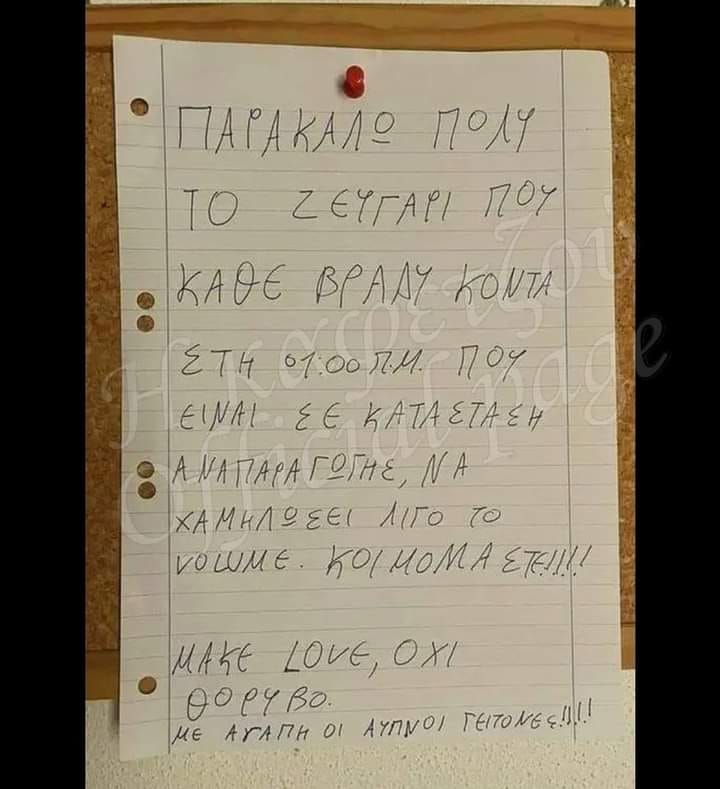 ΠΑΡΑΚΑΛΩ ΠΟΛΥ
ΤΟ ΖΕΥΓΑΡΙ ΠΟΥ
ΚΑΘΕ ΒΡΑΔΥ ΚΟΝΤΑ
ΣΤΗ 01:00 Π.Μ. ΠΟΥ
ΕΙΝΑΙ ΣΕ ΚΑΤΑΣΤΑΣΗ
ΑΝΑΠΑΡΑΓΩΓΗΣ, ΝΑ
ΧΑΜΗΛΩΣΕΙ ΛΙΓΟ ΤΟ
VOLUME. ΚΟΙΜΟΜΑΣΤΕ!!!!
MAKE LOVE, ΟΧΙ
ΘΟΡΥΒΟ.
ΜΕ ΑΓΑΠΗ ΟΙ ΑΥΠΝΟΙ ΓΕΙΤΟΝΕΣ!!!!
Η καφετζού
Official page